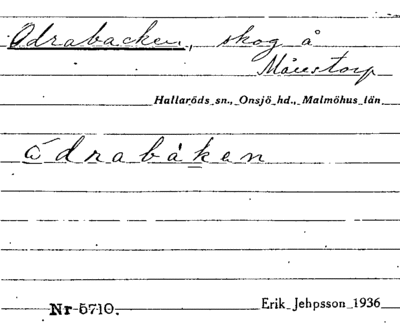 Odrabacken, skog å
Månstorp
Hallaröds sn., Onsjö hd., Malmöhus län
ådrabåken
Nr 5710.
Erik Jeppsson 1936